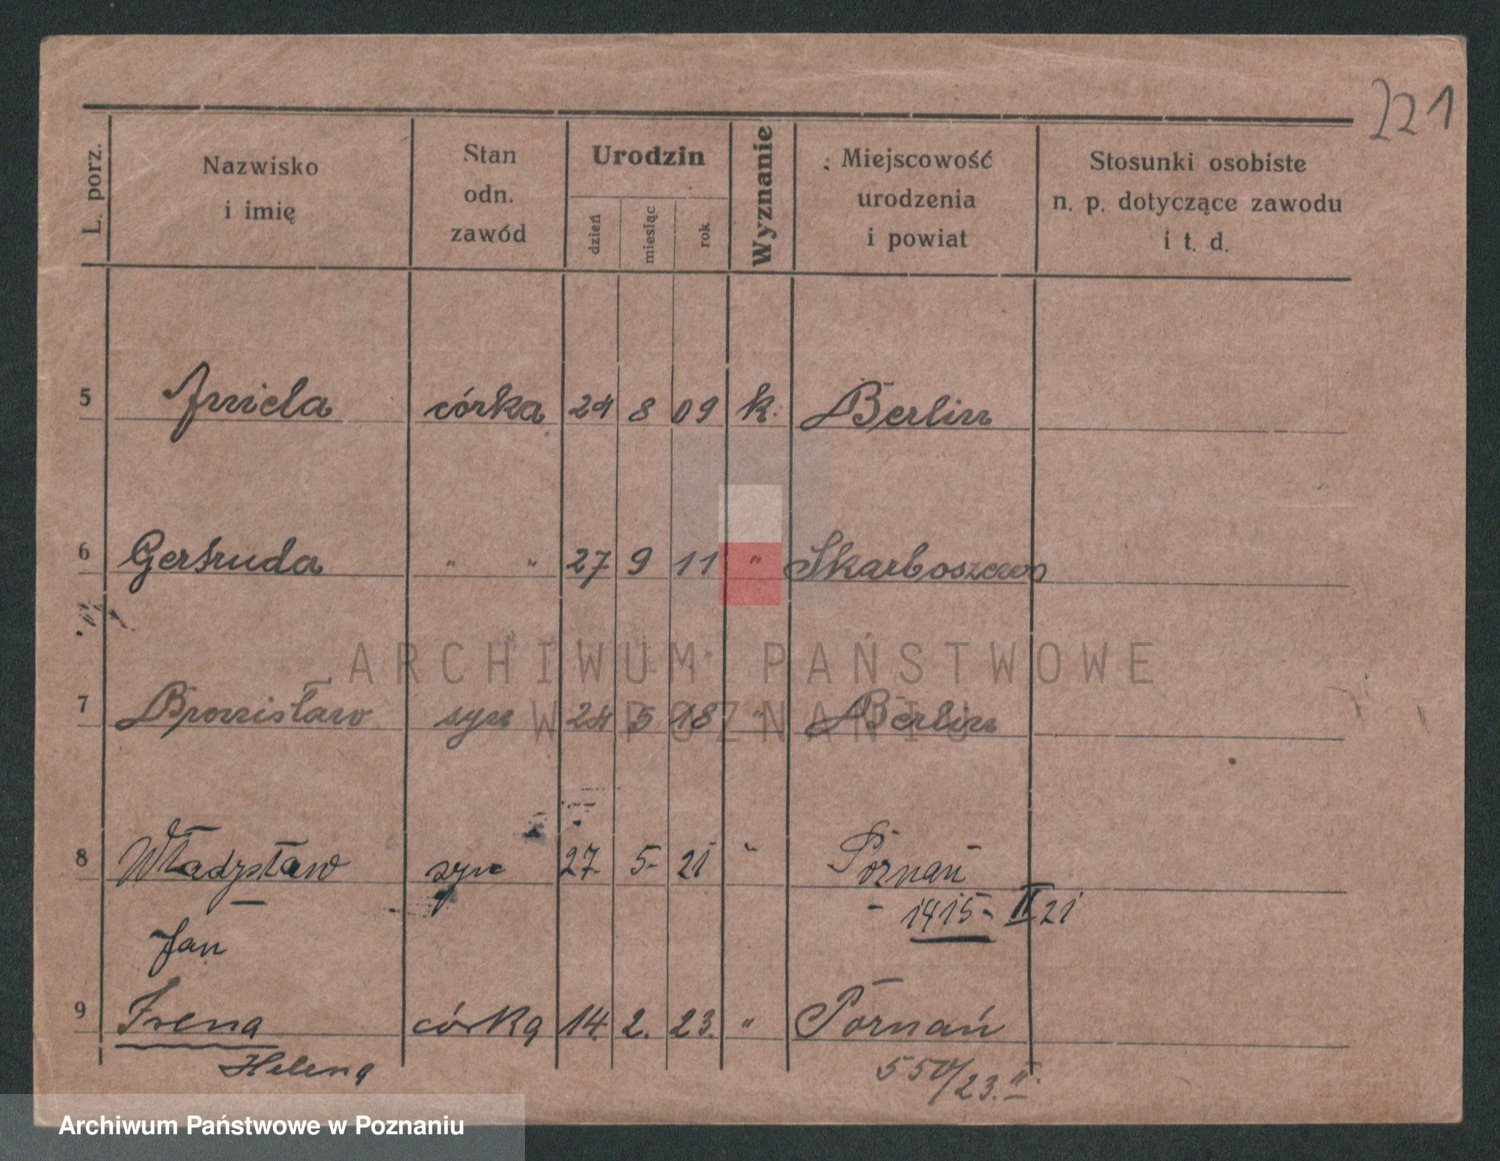 221
L. porz. Nazwisko i imię Stan odn. zawód Urodzin dzień miesiąc rok Wyznanie Miejscowość urodzenia i powiat Stosunki osobiste n. p. dotyczące zawodu i t. d.
5 Aniela córka 24 8 09 k. Berlin
6 Gertruda " " 27 9 11 " Skarboszewo
ARCHIWUM PAŃSTWOWE
W POZNANIU
7 Bronisław syn 24 5 18 " Berlin
8 Władysław syn 27 5 21 " Poznań
- 1415 - II 21
Jan
9 Irena córka 14. 2. 23. " Poznań
Helena
/23. II
Archiwum Państwowe w Poznaniu